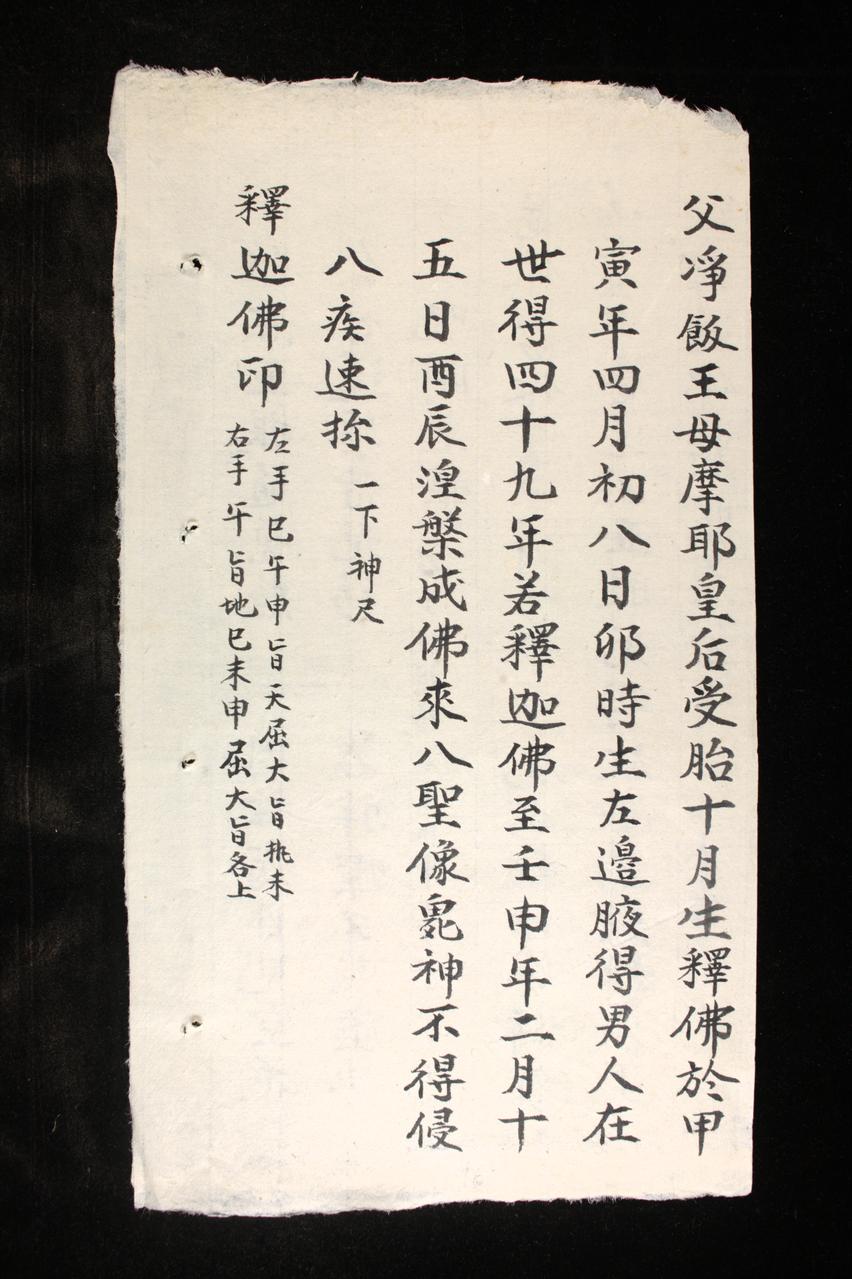 父淨飯王母摩耶皇后受胎十月生釋佛於甲
寅年四月初八日卯時生左邊腋得男人在
世得四十九年若釋迦佛至壬申年二月十
五日酉辰涅槃成佛來八聖像鬼神不得侵
八疾速拵
一下神尺
釋迦佛印
左手巳午申旨天屈大旨挑未
右手午旨地巳未申屈大旨各上